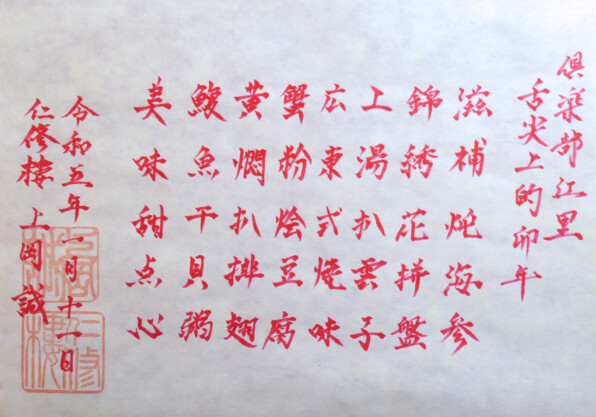 倶楽部 江里
舌尖上的卯年
滋補炖海参
錦綉花拼盤
上湯扒雲子
広東式焼味
蟹粉烩豆腐
黄燜扒排翅
鰒魚干貝粥
美味甜点心
令和五年一月十一日
仁修樓 上岡誠